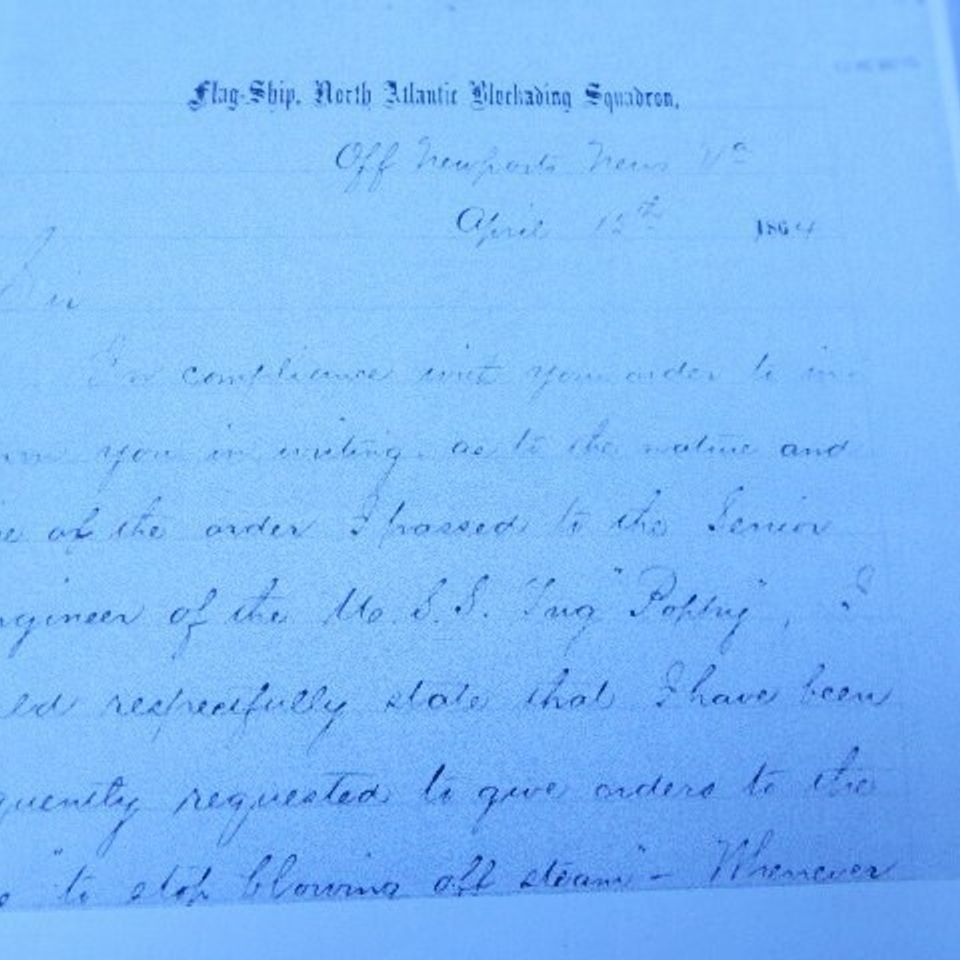 Flag-Ship, North Atlantic Blockading Squadron,
Off Newports News Va
April 12th 1864
Sir
In compliance with your order to in
you in writing, as to the nature and
of the order I passed to the Senior
ngineer of the U. S. S. Tug "Poppy", I
ld respectfully state that I have been
quently requested to give orders to the
"to stop blowing off steam" - Whenever